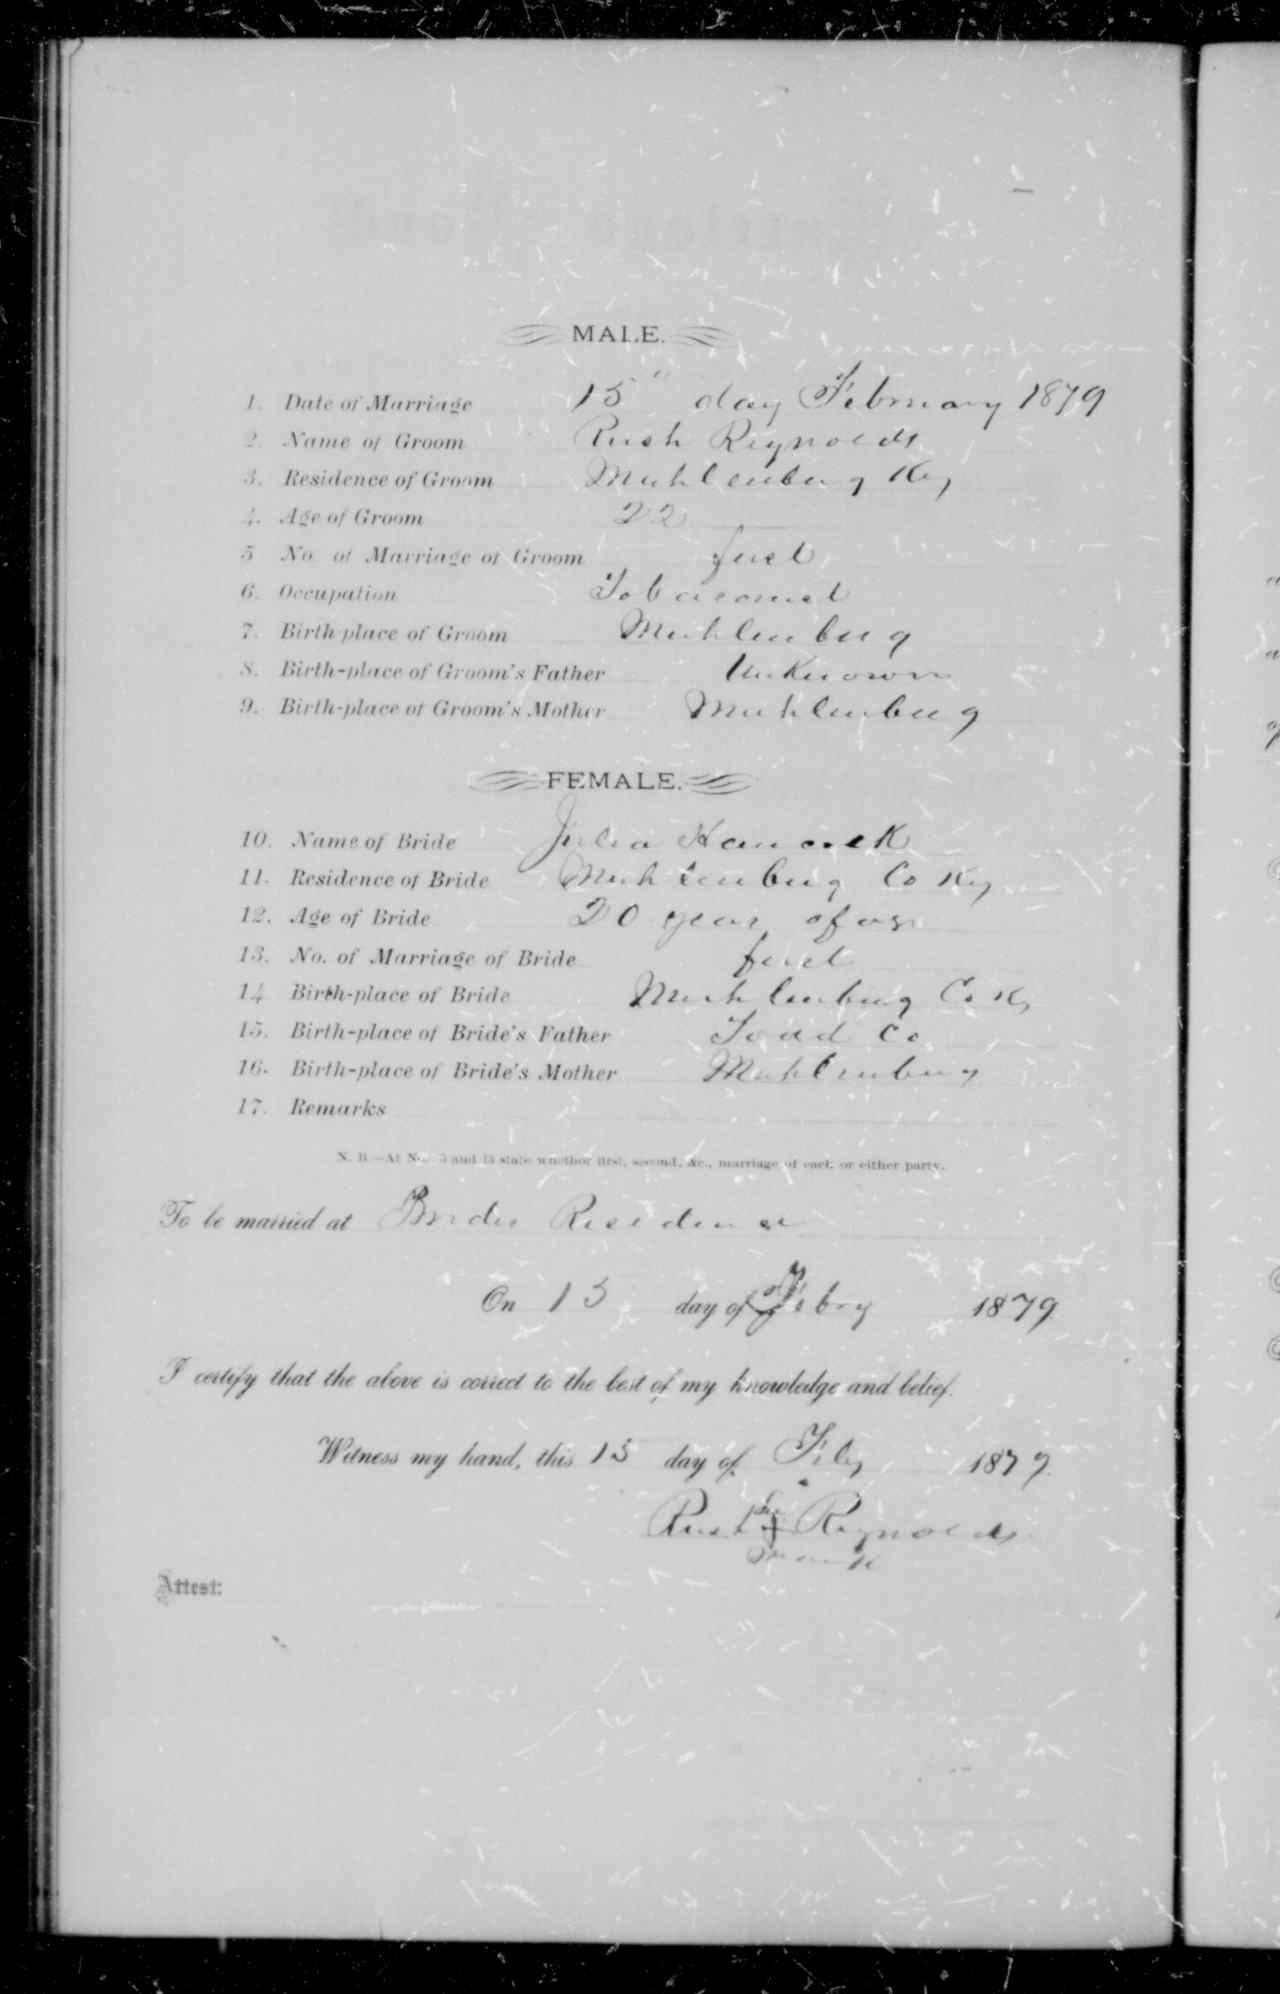 MALE.
1. Date of Marriage 15" day February 1879
2. Name of Groom Rush Reynolds
3. Residence of Groom Muhlenburg Ky
4. Age of Groom 22
5 No. of Marriage of Groom first
6. Occupation Tobaconist
7. Birth-place of Groom Muhlenburg
8. Birth-place of Groom's Father Unknown
9. Birth-place of Groom's Mother Muhlenburg
FEMALE.
10. Name of Bride Julia Hancock
11. Residence of Bride Muhlenburg Co Ky
12. Age of Bride 20 years of age
13. No. of Marriage of Bride first
14 Birth-place of Bride Muhlenburg Co Ky
15. Birth-place of Bride's Father Todd Co
16. Birth-place of Bride's Mother Muhlenburg
17. Remarks
N. B.—At Nos. 5 and 13 state whether first, second, &c., marriage of each or either party.
To be married at Brides Residence
On 15 day of Febry 1879
I certify that the above is correct to the best of my knowledge and belief.
Witness my hand, this 15 day of Feby 1879
Rush his + Reynolds
mark
Attest: